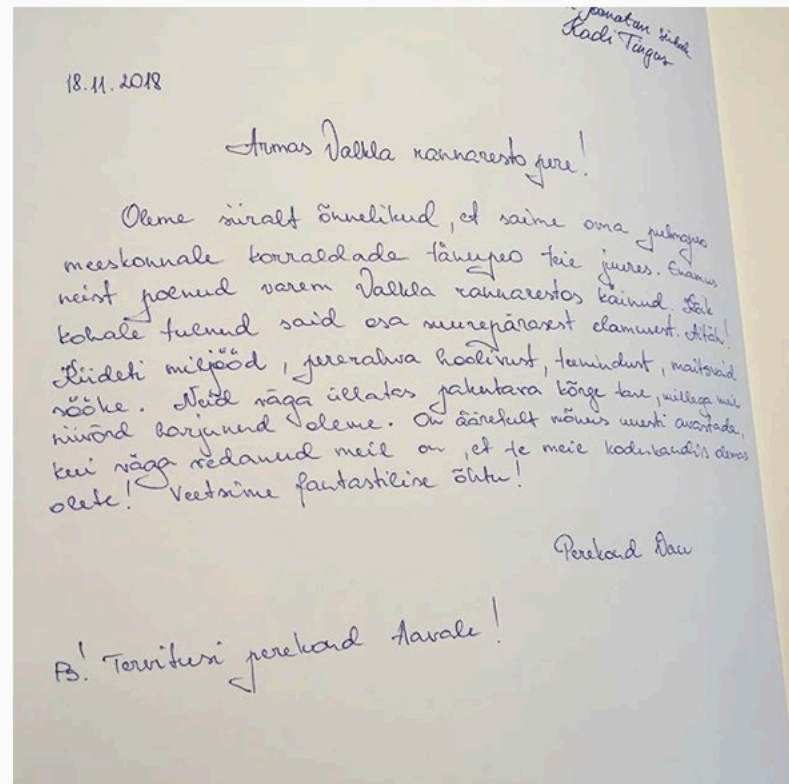 Joonatan
Kadi Tingas
18.11.2018
Armas Valkla rannaresto pere!
Oleme siiralt õnnelikud, et saime oma pulmapeo
meeskonnale korraldada tänupeo teie juures. Enamus
neist polnud varem Valkla rannarestos käinud. Kõik
kohale tulnud said osa suurepärasest elamusest. Aitäh!
Kiideti miljööd, pererahva hoolivust, teenindust, maitsvaid
sööke. Neid väga üllatas pakutava kõrge tase, millega meie
niivõrd harjunud oleme. On äärefult mõnus uuesti avastada,
kui väga vedanud meil on, et te meie kodukandis olemas
olete! Veetsime fantastilise õhtu!
Perekond
PS! Tervitusi perekond Aavale!